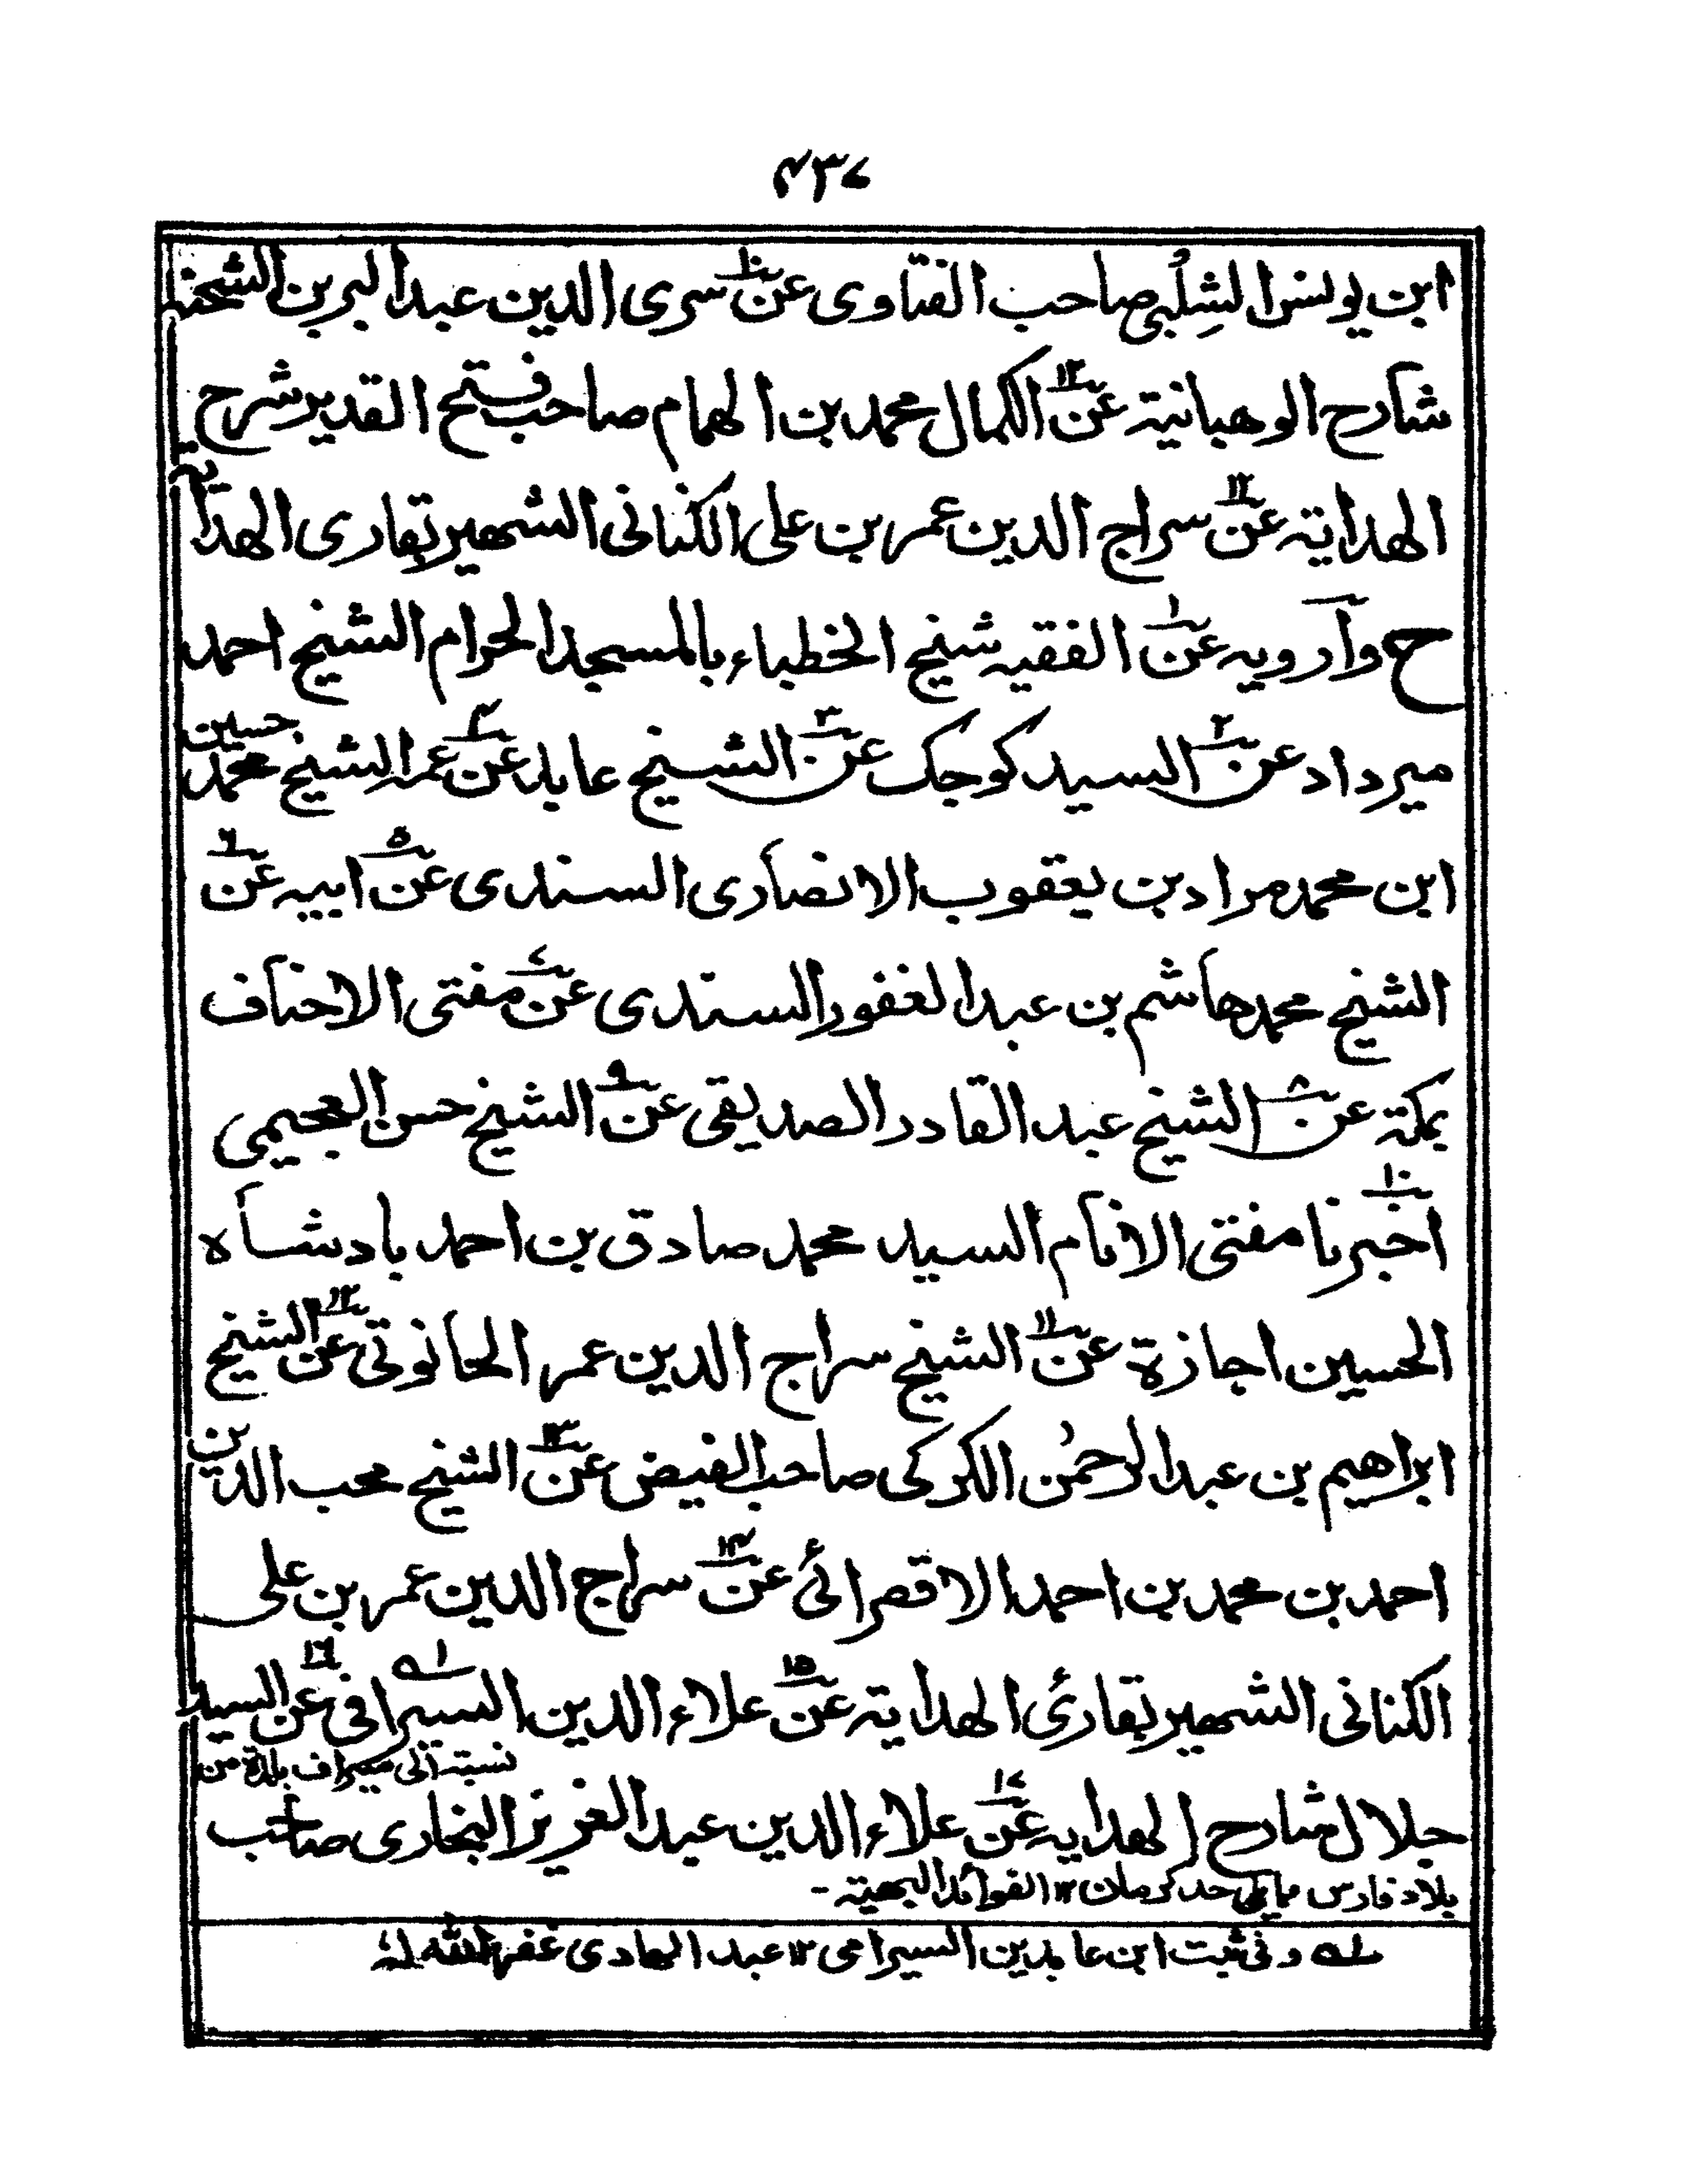 ۴۳۷
ابن یونس الشِلْبی صاحب الفتاوی عن ۱۰ سری الدین عبد البر بن الشحنہ
شارح الوھبانیۃ عن ۱۲ الکمال محمد بن الھمام صاحب فتح القدیر شرح
الھدایۃ عن ۱۲ سراج الدین عمر بن علی الکنانی الشھیر بقاری الھدایۃ
ح وارویہ عن ۱ الفقیہ شیخ الخطباء بالمسجد الحرام الشیخ احمد
میرداد عن ۲ السید کوجک عن ۳ الشیخ عابد عن ۴ عمہ الشیخ محمد حسین
ابن محمد مراد بن یعقوب الانصاری السندی عن ۵ ابیہ عن ۶
الشیخ محمد ھاشم بن عبد الغفور السندی عن ۷ مفتی الاحناف
بمکۃ عن ۸ الشیخ عبد القادر الصدیقی عن ۹ الشیخ حسن العجیمی
۱۰ اخبرنا مفتی الانام السید محمد صادق بن احمد بادشاہ
الحسین اجازۃ عن ۱۱ الشیخ سراج الدین عمر الحانوتی عن ۱۲ الشیخ
ابراھیم بن عبد الرحمٰن الکرکی صاحب الفیض عن ۱۳ الشیخ محب الدین
احمد بن محمد بن احمد الاقصرائی عن ۱۴ سراج الدین عمر بن علی
الکنانی الشھیر بقارئ الھدایۃ عن ۱۵ علاء الدین السیرافی ۱ عن ۱۶ السید
نسبۃ الی سیراف بلدۃ من
جلال شارح الھدایہ عن ۱۷ علاء الدین عبد العزیز البخاری صاحب
بلاد فارس مما یلی حد کرمان ۱۲ الفوائد البھیۃ -
۱ وفی ثبت ابن عابدین السیرامی ۱۲ عبد الھادی غفر اللہ لہ